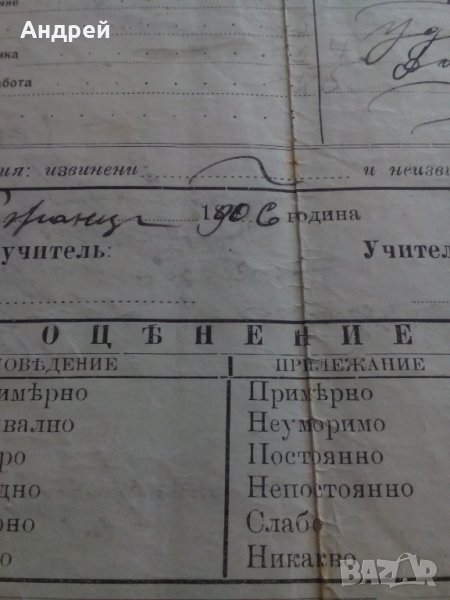 Андрей
чне
уд
ика
абота
ия: извинени и неизви
1890 6 година
учитель: Учител
ОЦѢНЕНИЕ
ПОВЕДЕНИЕ ПРИЛЕЖАНИЕ
имѣрно Примѣрно
вално Неуморимо
ро Постоянно
дно Непостоянно
рно Слабо
о Никакво
BAZAR